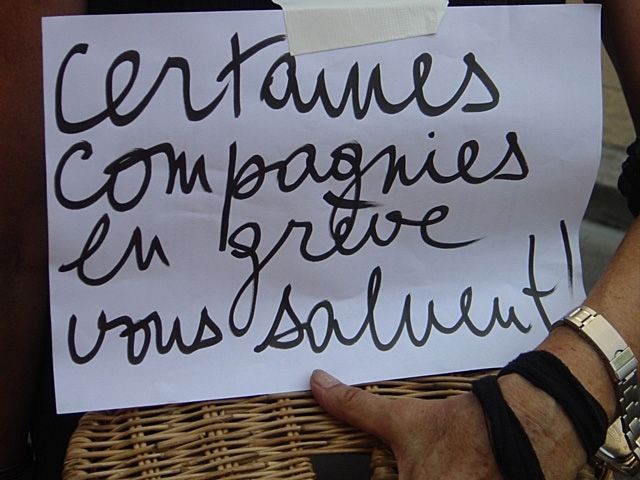 certaines
compagnies
en grève
vous saluent!